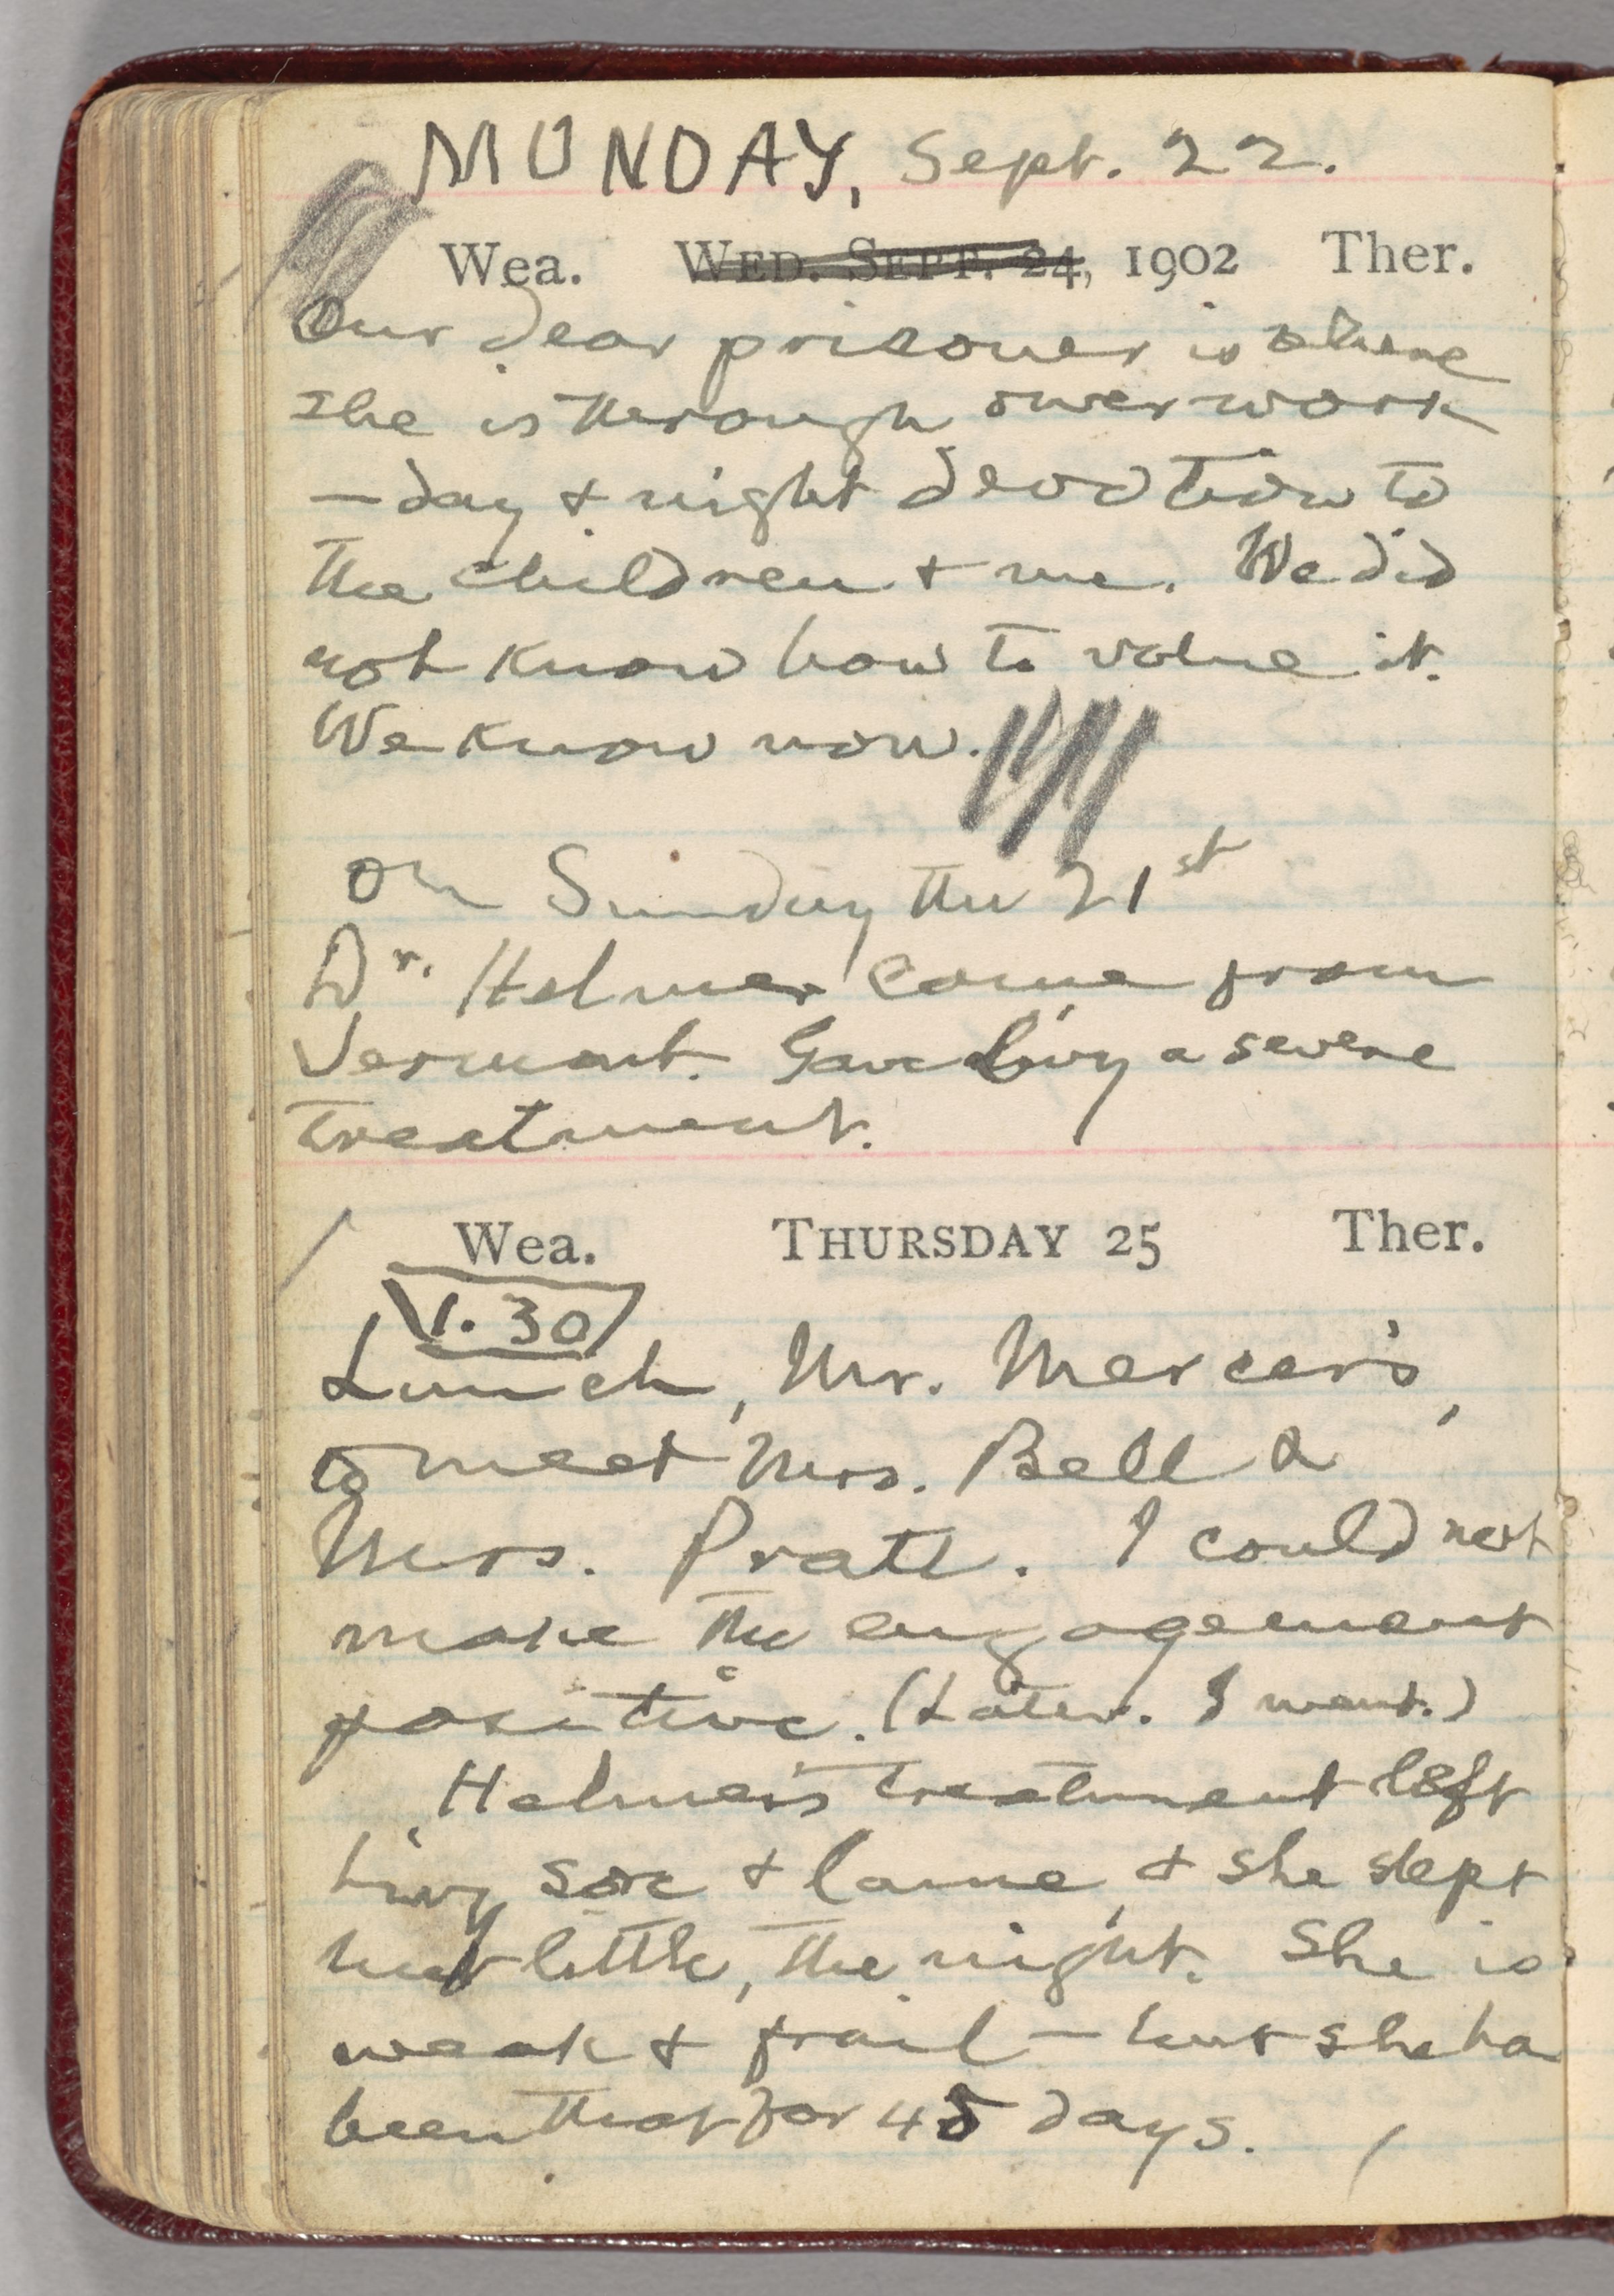 MONDAY, Sept. 22.
Wea. WED. SEPT. 24, 1902 Ther.
Our dear prisoner is where
she is through overwork
—day & night devotion to
the children & me. We did
not know how to value it.
We know now.
On Sunday the 21st
Dr. Helmer came from
Vermont. Gave Livy a severe
treatment.
Wea. THURSDAY 25 Ther.
1.30
Lunch, Mr. Mercer's,
to meet Mrs. Bell &
Mrs. Pratt. I could not
make the engagement
positive. (Later. I went.)
Helmer's treatment left
Livy sore & lame, & she slept
but little, the night. She is
weak & frail — but she ha
been that for 45 days.